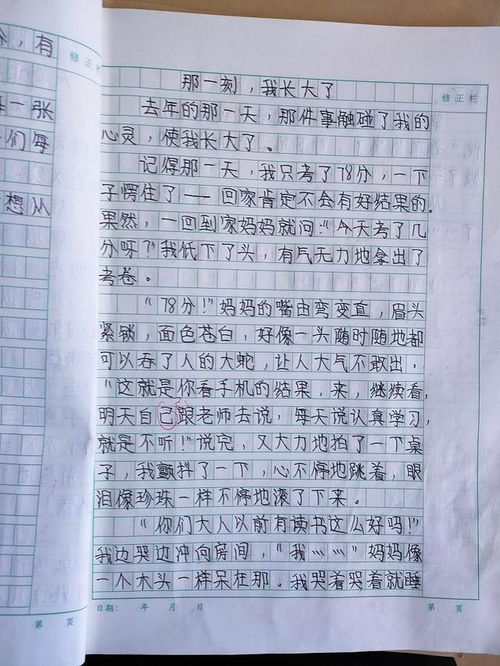 ，有
一张
们每
想从
修正栏
第 页
修正栏
那一刻，我长大了
去年的那一天，那件事触碰了我的
心灵，使我长大了。
记得那一天，我只考了78分，一下
子愣住了——回家肯定不会有好结果的。
果然，一回到家妈妈就问："今天考了几
分呀？"我低下了头，有气无力地拿出了
考卷。
"78分！"妈妈的嘴由弯变直，眉头
紧锁，面色苍白，好像一头随时随地都
可以吞了人的大蛇，让人大气不敢出，
"这就是你看手机的结果，来，继续看，
明天自己跟老师去说，每天说认真学习，
就是不听！"说完，又大力地拍了一下桌
子，我颤抖了一下，心不停地跳着，眼
泪像珍珠一样不停地滚了下来。
"你们大人以前有读书这么好吗！"
我边哭边冲向房间，"我……"妈妈像
一个木头一样呆在那。我哭着哭着就睡
日期： 年 月 日
第 页